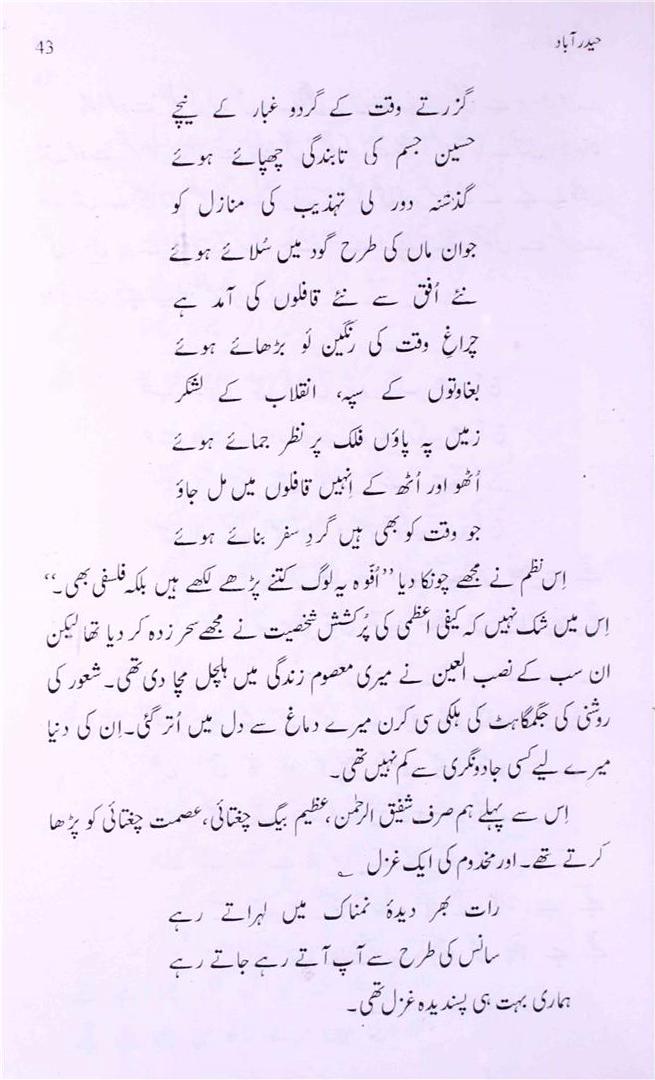 حیدرآباد 43
گزرتے وقت کے گردو غبار کے نیچے
حسین جسم کی تابندگی چھپائے ہوئے
گذشتہ دور کی تہذیب کی منازل کو
جوان ماں کی طرح گود میں سُلائے ہوئے
نئے اُفق سے نئے قافلوں کی آمد ہے
چراغِ وقت کی رنگین لَو بڑھائے ہوئے
بغاوتوں کے سپہ، انقلاب کے لشکر
زمیں پہ پاؤں فلک پر نظر جمائے ہوئے
اُٹھو اور اُٹھ کے اِنہیں قافلوں میں مل جاؤ
جو وقت کو بھی ہیں گردِ سفر بنائے ہوئے
اِس نظم نے مجھے چونکا دیا ’’اُفّوہ یہ لوگ کتنے پڑھے لکھے ہیں بلکہ فلسفی بھی۔‘‘
اِس میں شک نہیں کہ کیفی اعظمی کی پُرکشش شخصیت نے مجھے سحر زدہ کر دیا تھا لیکن
ان سب کے نصب العین نے میری معصوم زندگی میں ہلچل مچا دی تھی۔ شعور کی
روشنی کی جگمگاہٹ کی ہلکی سی کرن میرے دماغ سے دل میں اُتر گئی۔ اِن کی دنیا
میرے لیے کسی جادونگری سے کم نہیں تھی۔
اِس سے پہلے ہم صرف شفیق الرحمٰن، عظیم بیگ چغتائی، عصمت چغتائی کو پڑھا
کرتے تھے۔ اور مخدوم کی ایک غزل ؎
رات بھر دیدۂ نمناک میں لہراتے رہے
سانس کی طرح سے آپ آتے رہے جاتے رہے
ہماری بہت ہی پسندیدہ غزل تھی۔